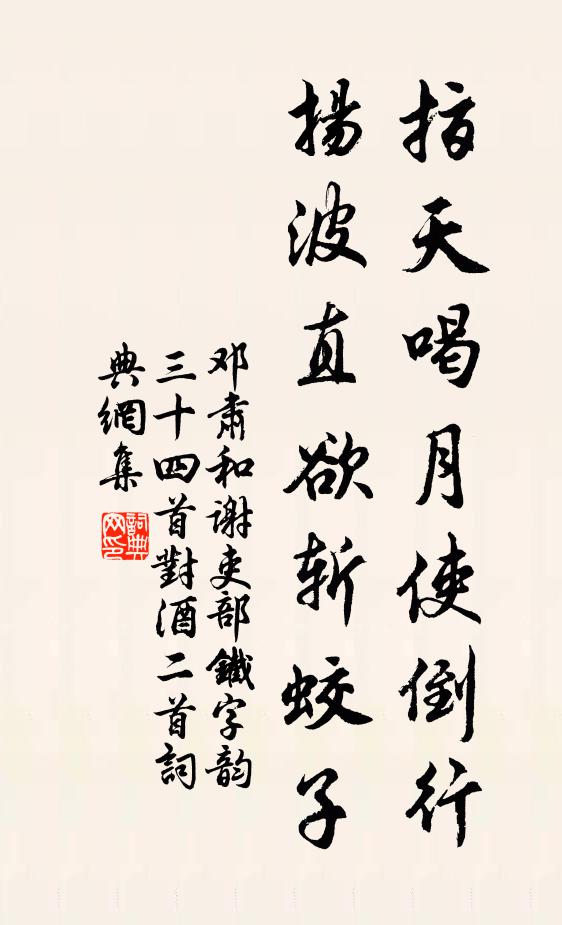 指天喝月使倒行
揚波直欲斬蛟子
邓肅和谢吏部鐵字韵
三十四首對酒二首詞
典網集
詞典網印